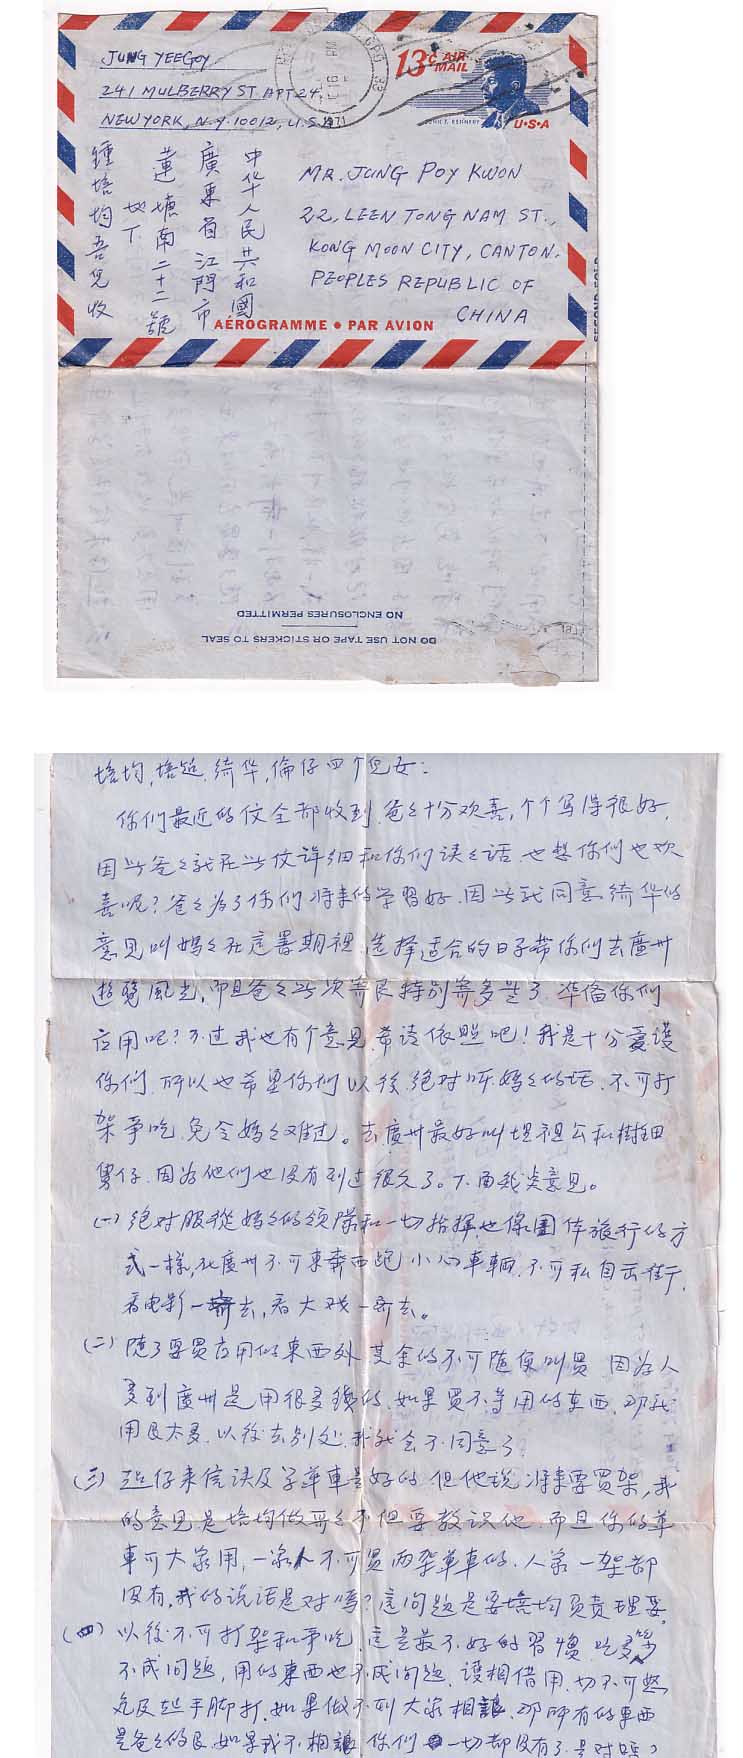 JUNG YEEGOY
241 MULBERRY ST APT 24
NEW YORK, N.Y. 10012, U.S.A
1971
PM
13¢ AIR MAIL
JOHN F. KENNEDY
U·S·A
MR. JUNG POY KWON
22, LEEN TONG NAM ST.,
KONG MOON CITY, CANTON.
PEOPLES REPUBLIC OF
CHINA
中华人民共和國
廣東省江門市
蓮塘南二十二號
地下
鍾培均吾兒收
AÉROGRAMME • PAR AVION
SECOND FOLD
NO ENCLOSURES PERMITTED
DO NOT USE TAPE OR STICKERS TO SEAL
培均,培超,绮华,倫仔四个兒女:
你们最近的信全部收到,爸々十分欢喜,个个写得很好,
因此爸々就在此信详细和你们谈々话,也想你们也欢
喜呢?爸々为了你们将来的学習好,因此我同意绮华的
意見叫妈々在这署期裡,选择适合的日子带你们去廣州
遊覽風光,而且爸々此次寄艮特別寄多些了,準备你们
应用吧?不过我也有个意見,希请依照吧!我是十分爱護
你们,所以也希望你们以後,绝对听妈々的话,不可打
架爭吃,免令妈々难过。去廣州最好叫祖公和樹
舅仔,因为他们也没有到过很久了。下面我意見。
(一)绝对服從妈々的领隊和一切指揮,也像團体旅行的方
式一樣,在廣州不可東奔西跑,小心車輛,不可私自出街,
看电影一齊去,看大戏一齊去。
(二)除了要買应用的東西外,其余的不可随便叫買,因为人
多到廣州是用很多錢的,如果買不等用的東西,那就
用艮太多,以後去别处,我就会不同意了
(三)超仔来信谈及学单車是好的,但他说将来要買架,我
的意見是培均做哥々不但要教识他,而且你的单
車可大家用,一家人不可買两架单車的,人家一架都
没有,我的说话是对嗎?这问题是要培均负责理妥,
(四)以後不可打架和爭吃,这是最不好的習慣,吃多
不成问题,用的東西也不成问题,互相借用,切不可
及起手脚打,如果做不到大家相讓,那所有的東西
是爸々的艮,如果我不相讓,你们一切都没有了,是对嗎?